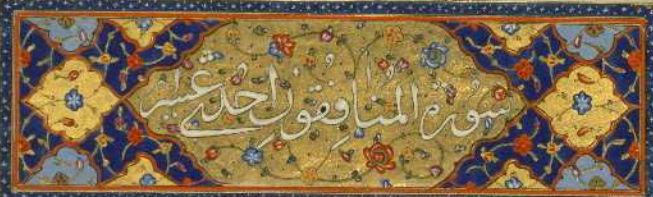 سورة المنافقون احدی عشر